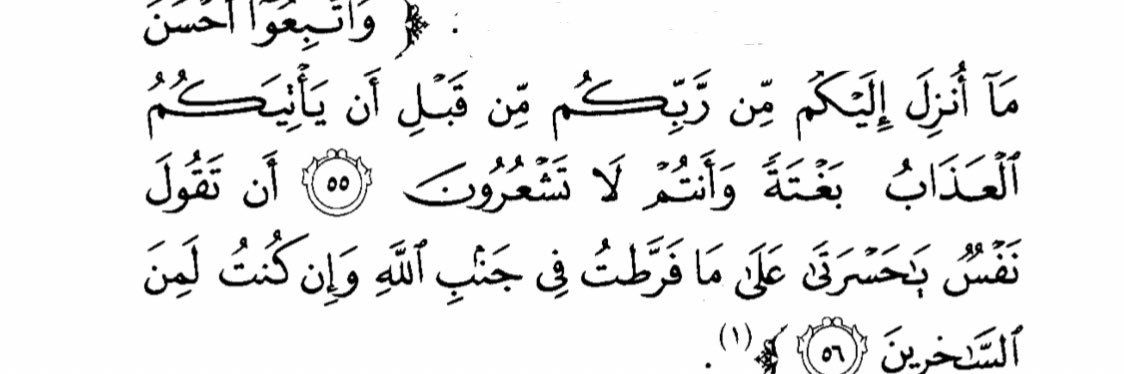 ﴿ وَٱتَّبِعُوٓا۟ أَحْسَنَ
مَآ أُنزِلَ إِلَيْكُم مِّن رَّبِّكُم مِّن قَبْلِ أَن يَأْتِيَكُمُ
ٱلْعَذَابُ بَغْتَةً وَأَنتُمْ لَا تَشْعُرُونَ ٥٥ أَن تَقُولَ
نَفْسٌ يَٰحَسْرَتَىٰ عَلَىٰ مَا فَرَّطتُ فِى جَنۢبِ ٱللَّهِ وَإِن كُنتُ لَمِنَ
ٱلسَّٰخِرِينَ ٥٦ ﴾(١) .